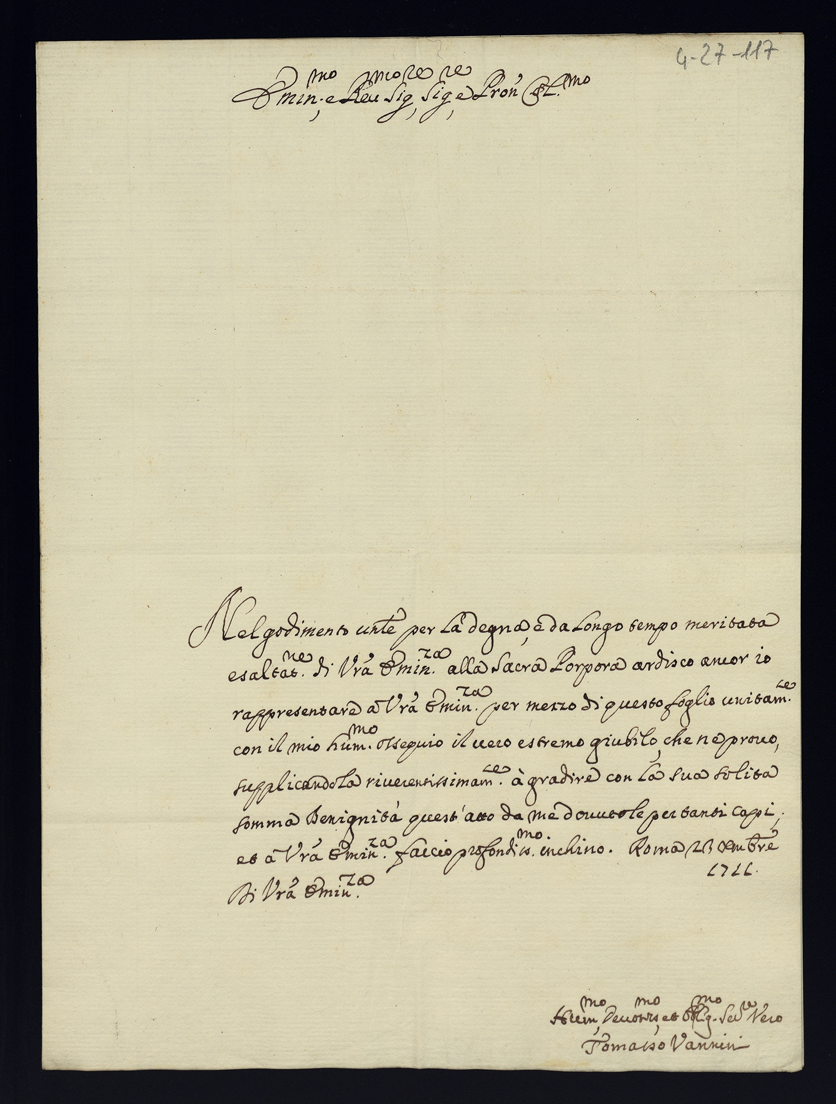 4-27-117
Emin.mo e Reu.mo Sig.re Sig.re e Pron Col.mo
Nel godimento unle per la degna, e da longo tempo meritata
esaltat.ne di Vrã Emin.za alla Sacra Porpora ardisco ancor io
rappresentare à Vrã Emin.za per mezzo di questo foglio unitam.te
con il mio hum.mo ossequio il vero estremo giubilo, che ne prouo,
supplicandola riuerentissimam.te à gradire con la sua solita
somma Benignità quest'atto da me douutole per tanti capi;
et à Vrã Emin.za faccio profondiss.mo inchino. Roma 23 Xmbre
1711.
Di Vrã Emin.za
Hum.mo, Deuotiss.mo, et Oblig.mo Ser.re Vero
Tomasso Vannini